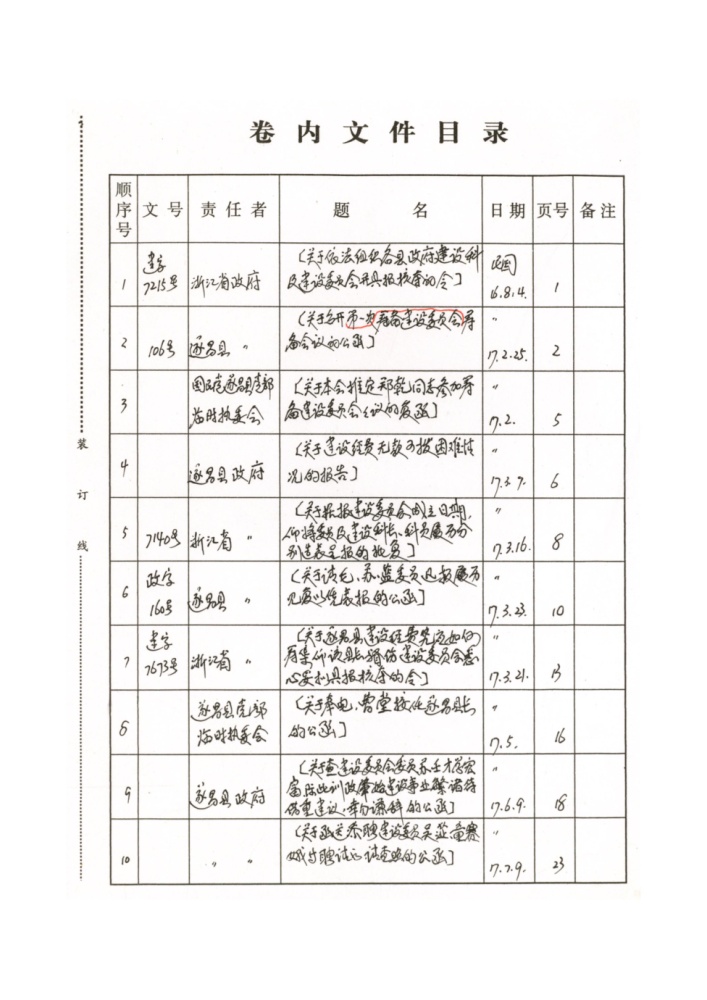 卷内文件目录
顺序号 文号 责任者 题 名 日期 页号 备注
1 建字7215号 浙江省政府 [关于依法组织各县政府建设科及建设委员会并具报核夺的令] 民国16.8.4. 1
2 106号 遂昌县 〃 [关于召开第一次筹备建设委员会筹备会议的公函] 〃 17.2.25. 2
3 国民党遂昌县党部临时执委会 [关于本会推定郑乾同志参加筹备建设委员会会议的复函] 〃 17.2. 5
4 遂昌县政府 [关于建设经费无款可拨困难情况的报告] 〃 17.3.7. 6
5 7140号 浙江省 〃 [关于据报建设委员会成立日期,仰将委员及建设科长、科员履历分别造表呈报的批复] 〃 17.3.16. 8
6 政字160号 遂昌县 〃 [关于请毛、苏、蓝委员迅报履历 的公函] 〃 17.3.23. 10
7 建字7673号 浙江省 〃 [关于遂昌县建设经费究应如何筹集仰该县长 建设委员会悉心妥 具报核夺的令] 〃 17.3.21. 13
8 遂昌县党部临时执委会 [关于奉电, 接任遂昌县长的公函] 〃 17.5. 16
9 遂昌县政府 [关于查建设委员会委员 训政 建设事业繁 建议, 的公函] 〃 17.6.9. 18
10 〃 〃 [关于函送 聘建设委员吴 的公函] 〃 17.7.9. 23
装
订
线